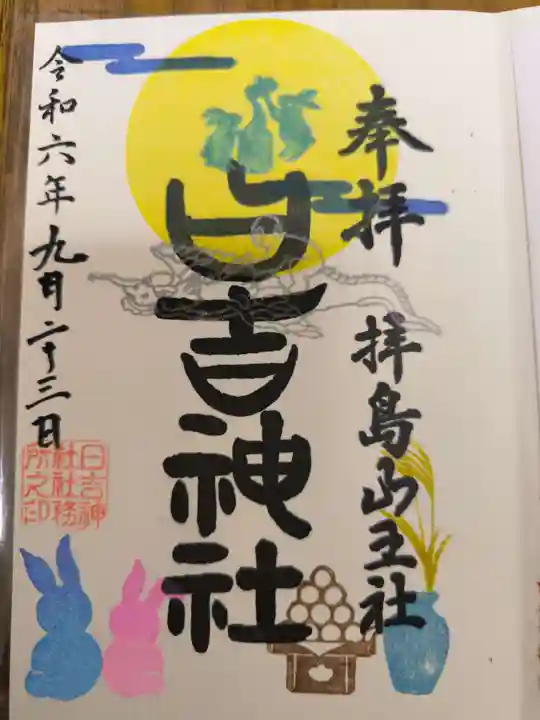 奉拝 拝島山王社
日吉神社
令和六年九月二十三日
日吉神
社社務
所之印